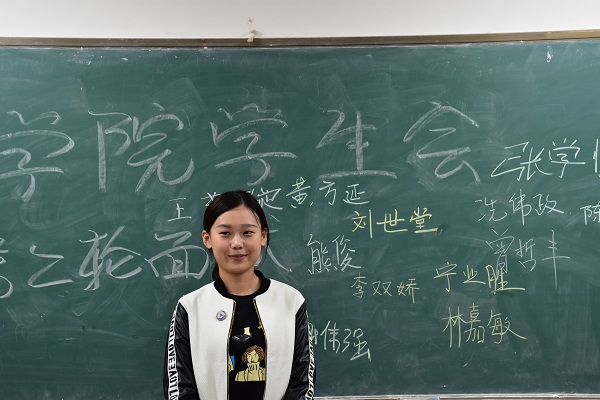 学院学生会
张学
王 黄方延
冼伟政
陈
刘世堂
二轮面
熊俊
曾哲丰
李双娇
宁业瞳
伟强
林嘉敏
LOVE